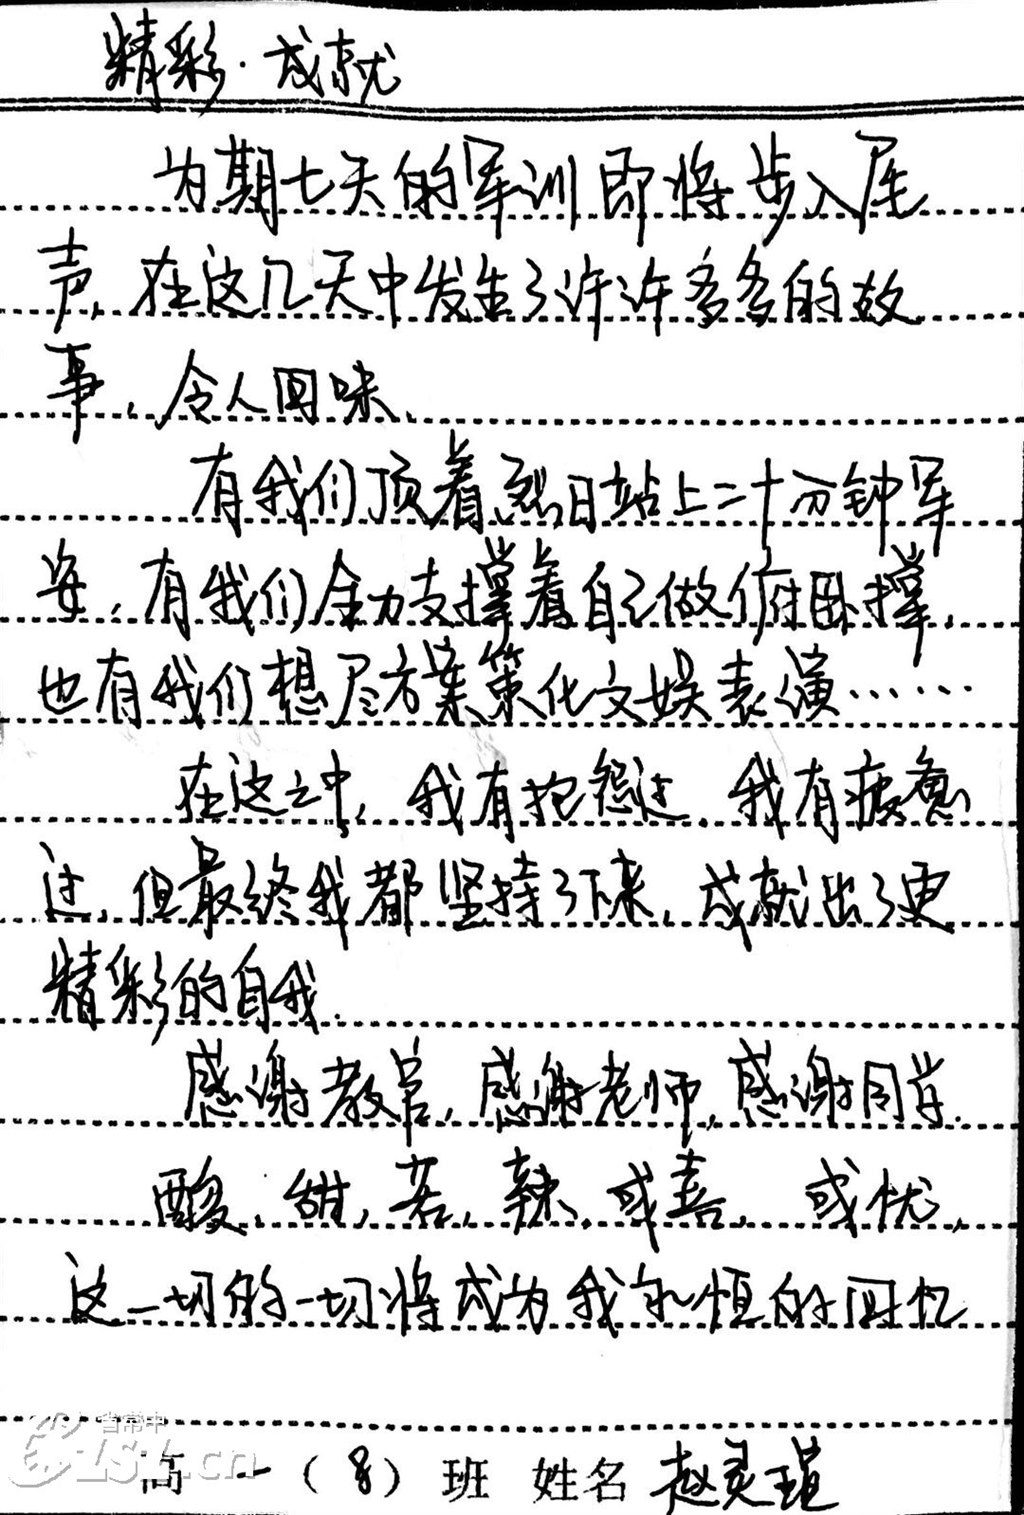 精彩·成就
为期七天的军训即将步入尾
声,在这几天中发生了许许多多的故
事,令人回味.
有我们顶着烈日站上二十分钟军
姿,有我们全力支撑着自己做俯卧撑,
也有我们想尽方案策化文娱表演……
在这之中,我有抱怨过,我有疲惫
过,但最终我都坚持了下来,成就出了更
精彩的自我.
感谢教官,感谢老师,感谢同学.
酸、甜,苦,辣,或喜,或忧,
这一切的一切将成为我永恒的回忆
省常中
高一(8)班 姓名 赵灵瑄